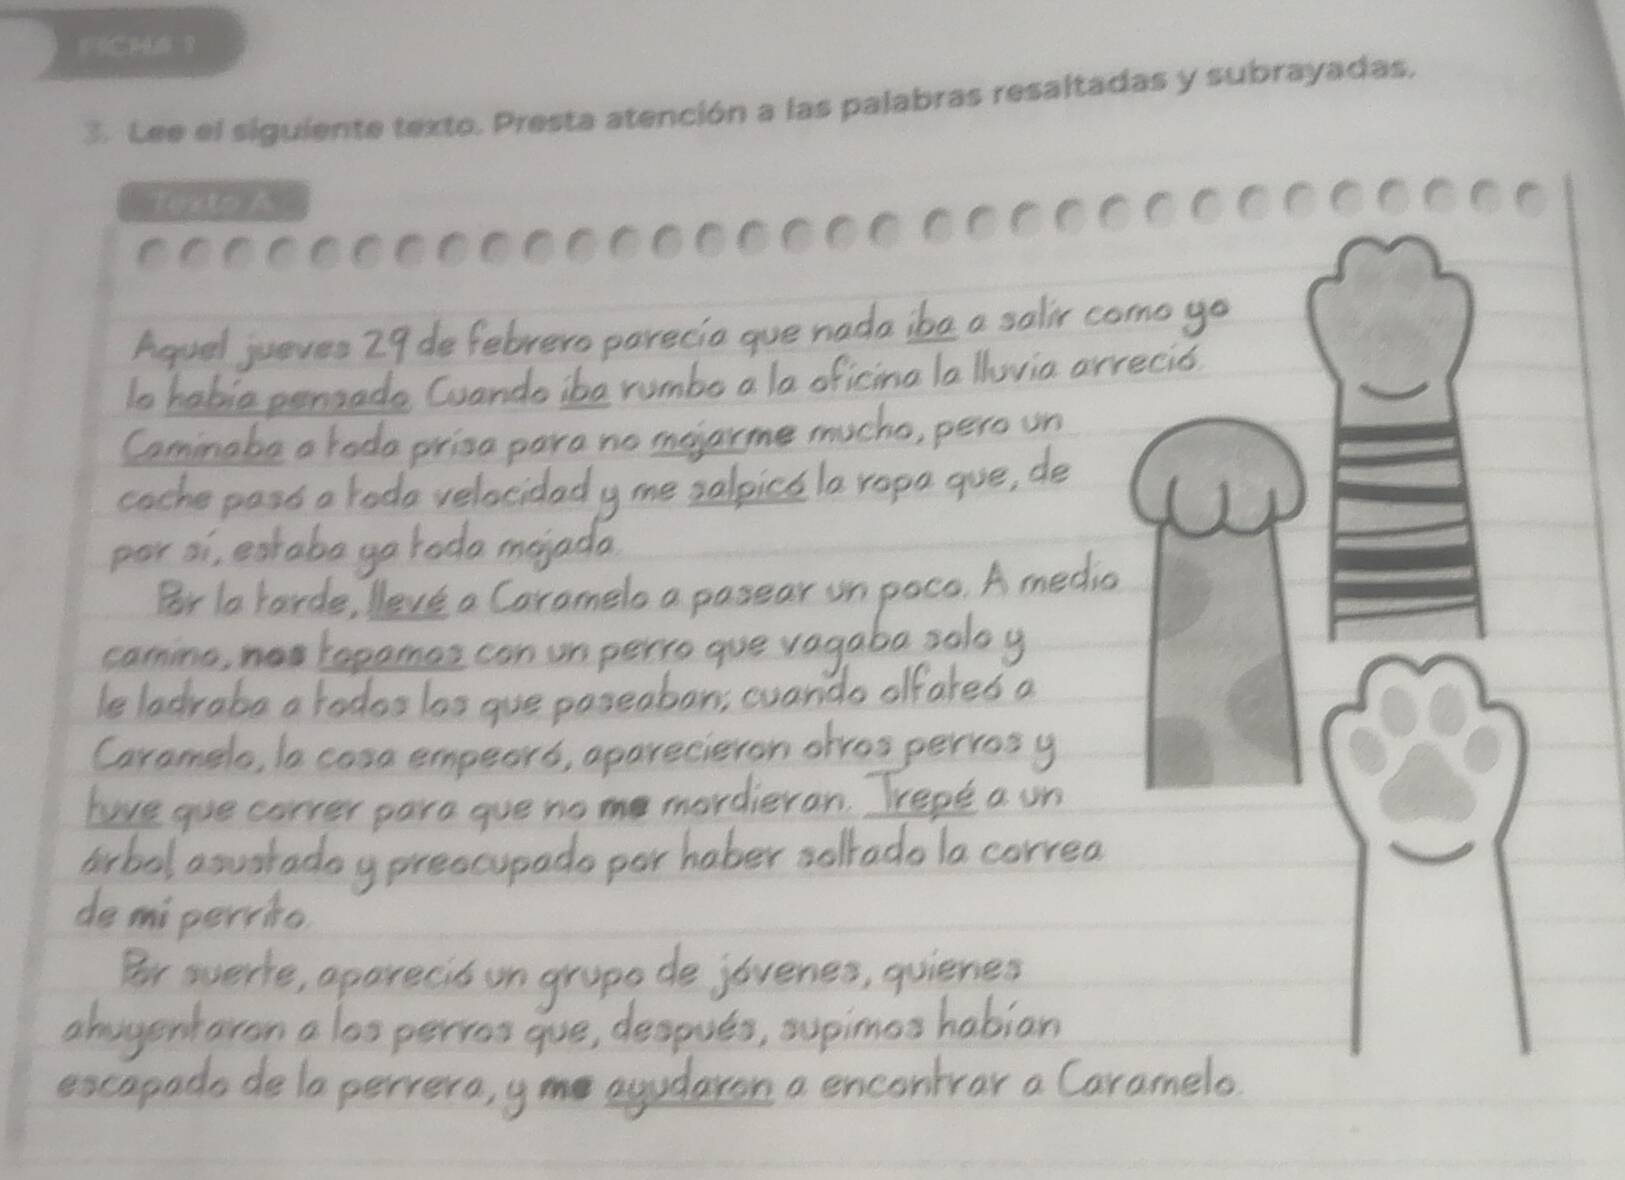 FICHA 1
3. Lee el siguiente texto. Presta atención a las palabras resaltadas y subrayadas.
Texto A
Aquel jueves 29 de febrero parecía que nada iba a salir como yo
lo había pensado. Cuando iba rumbo a la oficina la lluvia arreció.
Caminaba a toda prisa para no mojarme mucho, pero un
coche pasó a toda velocidad y me salpicó la ropa que, de
por sí, estaba ya toda mojada.
Por la tarde, llevé a Caramelo a pasear un poco. A medio
camino, nos topamos con un perro que vagaba solo y
le ladraba a todos los que paseaban; cuando olfateó a
Caramelo, la cosa empeoró, aparecieron otros perros y
tuve que correr para que no me mordieran. Trepé a un
árbol asustado y preocupado por haber soltado la correa
de mi perrito.
Por suerte, apareció un grupo de jóvenes, quienes
ahuyentaron a los perros que, después, supimos habían
escapado de la perrera, y me ayudaron a encontrar a Caramelo.